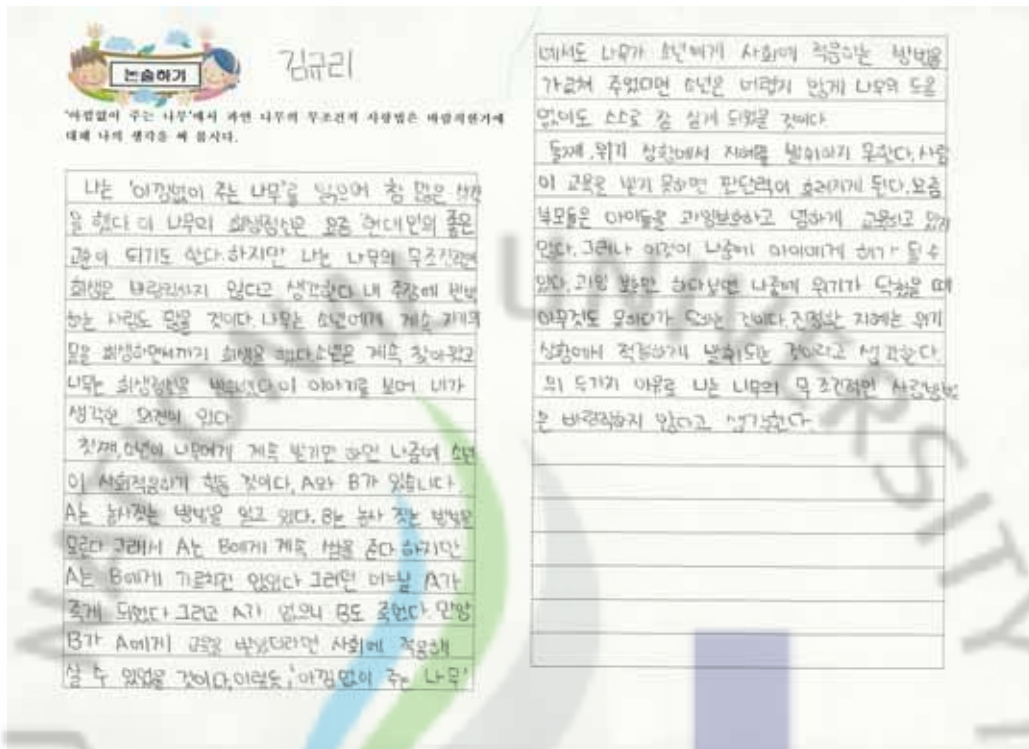 논술하기
김규리
'아낌없이 주는 나무'에서 과연 나무의 무조건적 사랑법은 바람직한가에
대해 나의 생각을 써 봅시다.
나는 '아낌없이 주는 나무'를 읽으며 참 많은 생각
을 했다. 이 나무의 희생정신은 요즘 현대인의 좋은
교훈이 되기도 한다. 하지만 나는 나무의 무조건적인
희생은 바람직하지 않다고 생각한다. 내 주장에 반박
하는 사람도 많을 것이다. 나무는 소년에게 계속 자기의
몸을 희생하면서까지 희생을 했다. 소년은 계속 찾아왔고
나무는 희생정신을 발휘했다. 이 이야기를 보며 내가
생각한 의견이 있다.
첫째, 소년이 나무에게 계속 받기만 하면 나중에 소년
이 사회적응하기 힘들 것이다. A와 B가 있습니다.
A는 농사짓는 방법을 알고 있다. B는 농사 짓는 방법을
모른다. 그래서 A는 B에게 계속 쌀을 준다. 하지만
A는 B에게 가르치진 않았다. 그러던 어느날 A가
죽게 되었다. 그리고 A가 없으니 B도 죽었다. 만약
B가 A에게 교육을 받았더라면 사회에 적응해
살 수 있었을 것이다. 이렇듯, '아낌없이 주는 나무'
에서도 나무가 소년에게 사회에 적응하는 방법을
가르쳐 주었더면 소년은 어렵지 않게 나무의 도움
없이도 스스로 잘 살게 되었을 것이다.
둘째, 위기 상황에서 지혜를 발휘하지 못한다. 사람
이 교육을 받지 못하면 판단력이 흐려지게 된다. 요즘
부모들은 아이들을 과잉보호하고 념하게 교육하고 있지
않다. 그러나 이것이 나중에 아이에게 해가 될 수
있다. 과잉 보호만 하다보면 나중에 위기가 닥쳤을 때
아무것도 못하다가 당하는 것이다. 진정한 지혜는 위기
상황에서 적절하게 발휘되는 것이라고 생각한다.
위 두가지 이유로 나는 나무의 무조건적인 사랑방법
은 바람직하지 않다고 생각한다.
NATIONAL UNIVERSITY